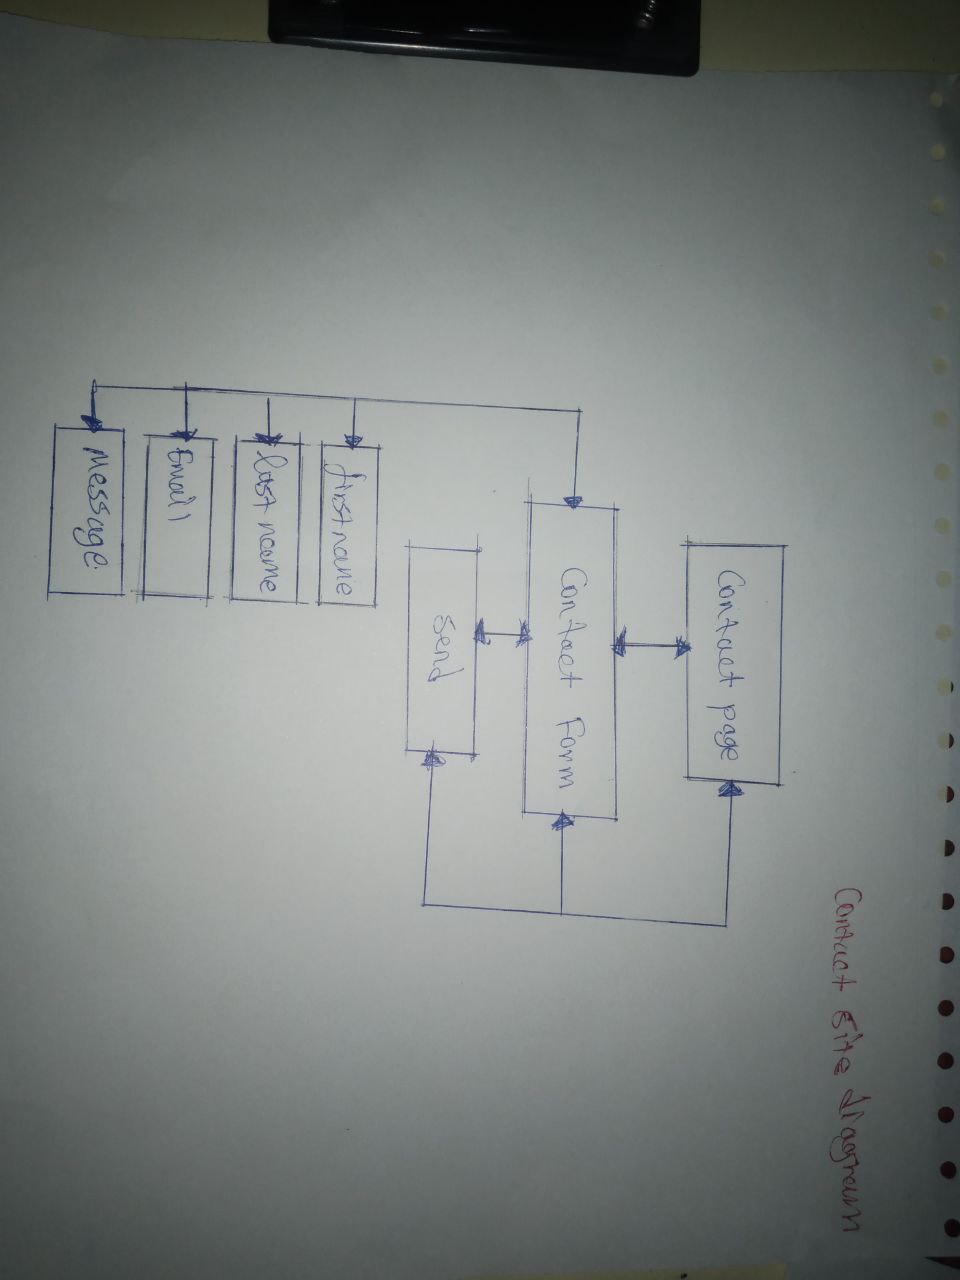 Contact site diagram
Contact page
Contact Form
Send
first name
last name
Email
Message.